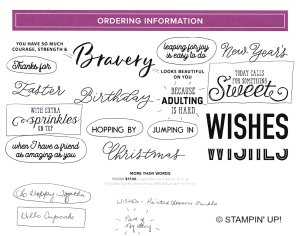 ORDERING INFORMATION
YOU HAVE SO MUCH
COURAGE, STRENGTH &
Bravery
leaping for joy
is easy to do
New Year's
Thanks for
LOOKS BEAUTIFUL
ON YOU
TODAY CALLS
FOR SOMETHING
Sweet
Easter
Birthday
BECAUSE
ADULTING
IS HARD
WITH EXTRA
sprinkles
ON TOP
HOPPING BY
JUMPING IN
WISHES
WISHES
when I have a friend
as amazing as you
Christmas
MORE THAN WORDS
Hello Cupcake
WISHES -
© STAMPIN' UP!